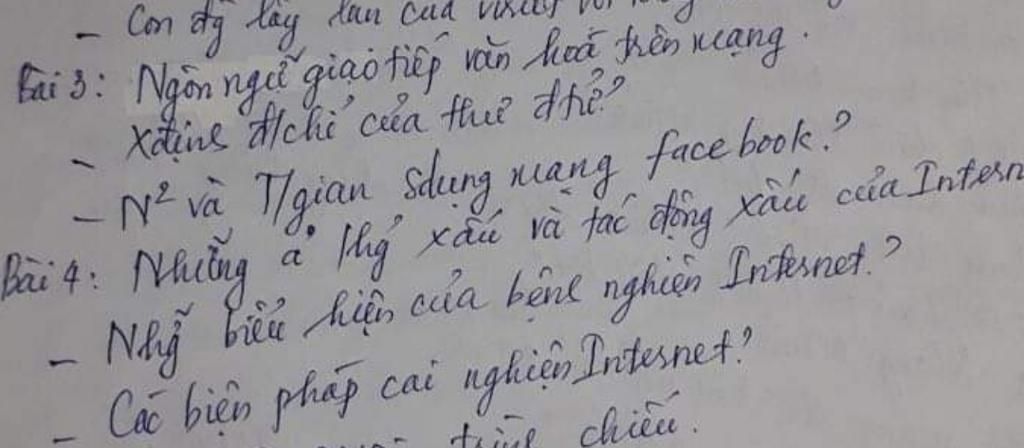 - Con đg lây lan của virus
Bài 3: Ngôn ngữ giao tiếp văn hoá trên mạng.
- Xđịnh đ/chỉ của thư đtử?
- N² và T/gian Sdụng mạng facebook?
Bài 4: Những ả' hg' xấu và tác động xấu của Intern
- Nhg~ biểu hiện của bệnh nghiện Internet?
- Các biện pháp cai nghiện Internet?
trình chiếu.